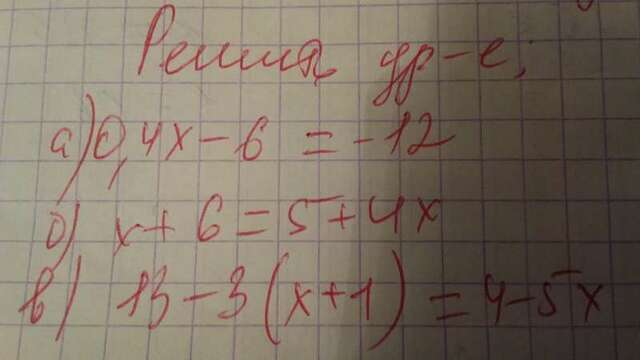 Решить ур-е;
а) 0,4x - 6 = -12
б) x + 6 = 5 + 4x
в) 13 - 3(x+1) = 4 - 5x